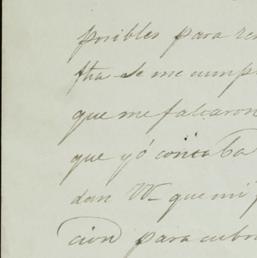 posibles para re
fha se me cump
que me faltaron
que yó contaba
dan V. que mi
cion para cubr